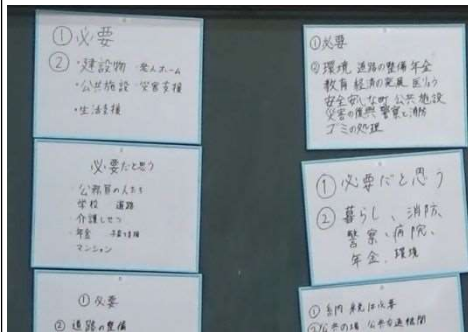 ①必要
②・建設物 老人ホーム
・公共施設 災害支援
・生活支援
必要だと思う
・公務員の人たち
学校 道路
・介護しせつ
・年金 子育て支援
マンション
①必要
②道路の整備
①必要
②環境 道路の整備 年金
教育 経済の発展 医りょう
安全安心な町 公共施設
災害の復興 警察と消防
ゴミの処理
①必要だと思う
②暮らし、消防、
警察、病院、
年金、環境
税は必要
②公共の場 公共交通機関